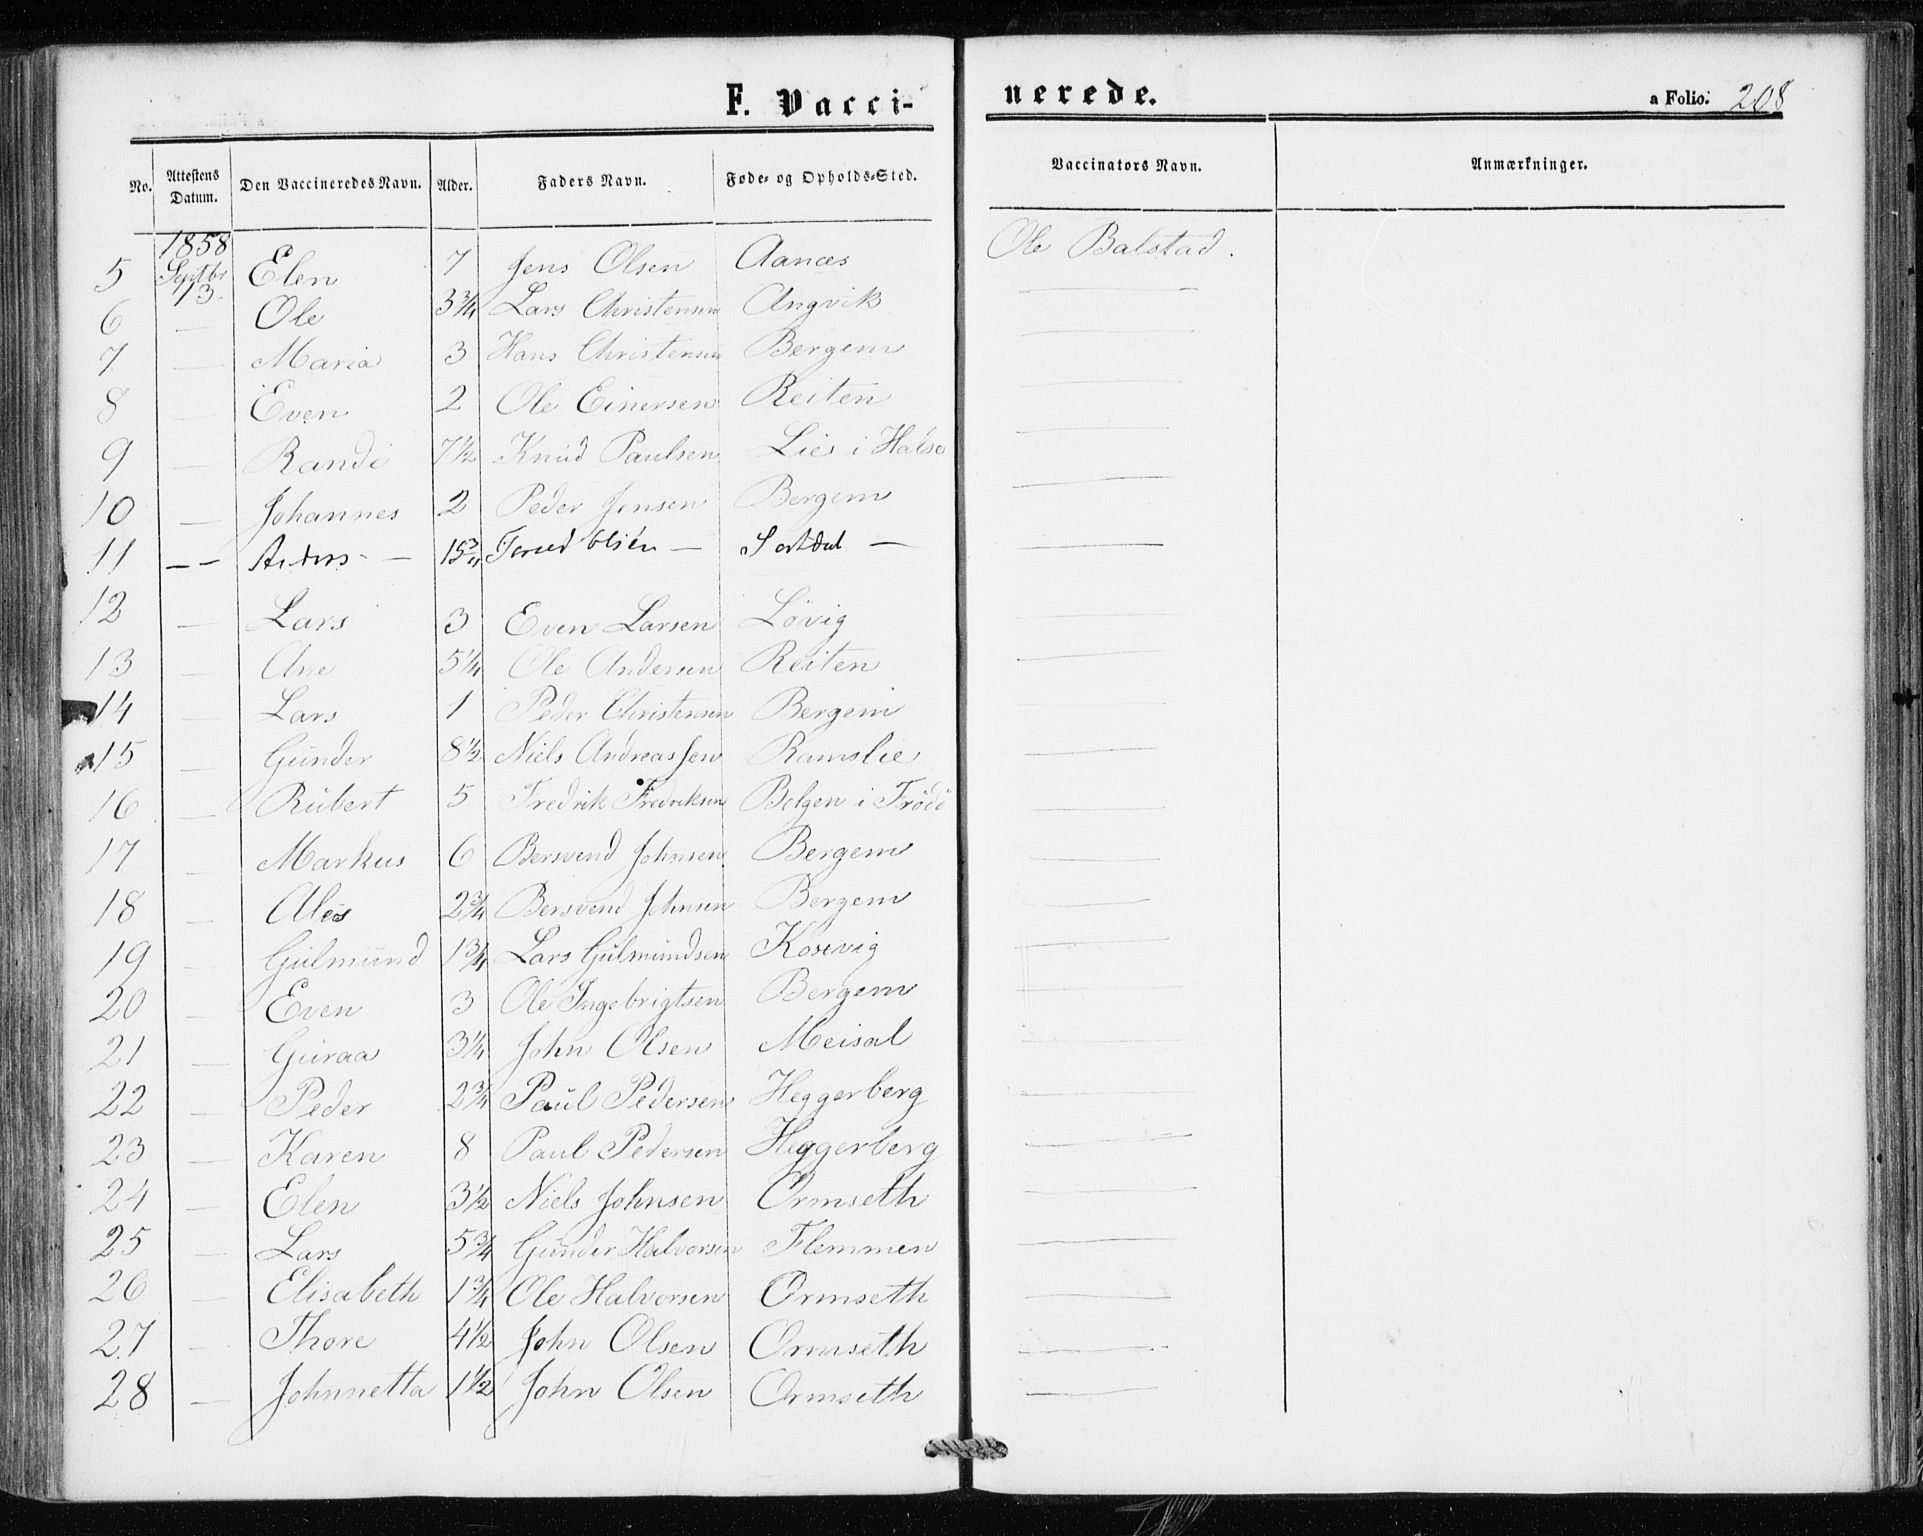 F. Vacci-
nerede.
a Folio. 208
No. Attestens Datum. Den Vaccineredes Navn. Alder. Faders Navn. Føde- og Opholds-Sted. Vaccinators Navn. Anmærkninger.
1858
5 Septbr 13. Elen 7 Jens Olsen Aanæs Ole Balstad.
6 — Ole 3¾ Lars Christensen Angvik —
7 — Maria 3 Hans Christensen Bergem —
8 — Even 2 Ole Einersen Reiten —
9 — Randi 7½ Knud Paulsen Lies i Halse —
10 — Johannes 2 Peder Jensen Bergem —
11 — — Anders — 15¾ Olsen — —
12 — Lars 3 Even Larsen Løvig —
13 — Ane 5¼ Ole Andersen Reiten —
14 — Lars 1 Peder Christensen Bergem —
15 — Gunder 8½ Niels Andreassen Ramslie —
16 — Rubert 5 Fredrik Fredriksen Bolgen i Frödö —
17 — Markus 6 Bersvend Johnsen Bergem —
18 — Ales 2¾ Bersvend Johnsen Bergem —
19 — Gulmund 1¾ Lars Gulmundsen Kosevig —
20 — Even 3 Ole Ingebrigtsen Bergem —
21 — Guraa 3¼ John Olsen Meisal —
22 — Peder 2¾ Paul Pedersen Heggerberg —
23 — Karen 8 Paul Pedersen Heggerberg —
24 — Elen 3½ Niels Johnsen Ormseth —
25 — Lars 5¾ Gunder Halvorsen Flemmen —
26 — Elisabeth 1¾ Ole Halvorsen Ormseth —
27 — Thore 4½ John Olsen Ormseth —
28 — Johnnetta 1½ John Olsen Ormseth —